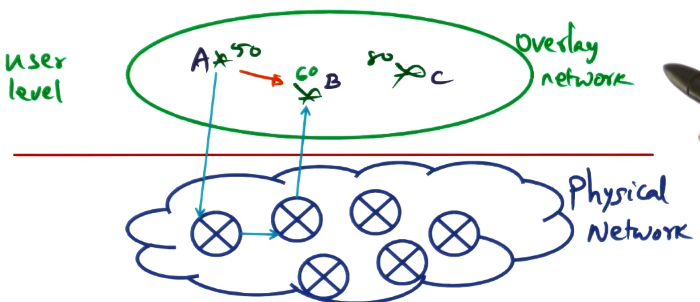 user
level
A 50
60 B
80 C
Overlay
network
Physical
Network